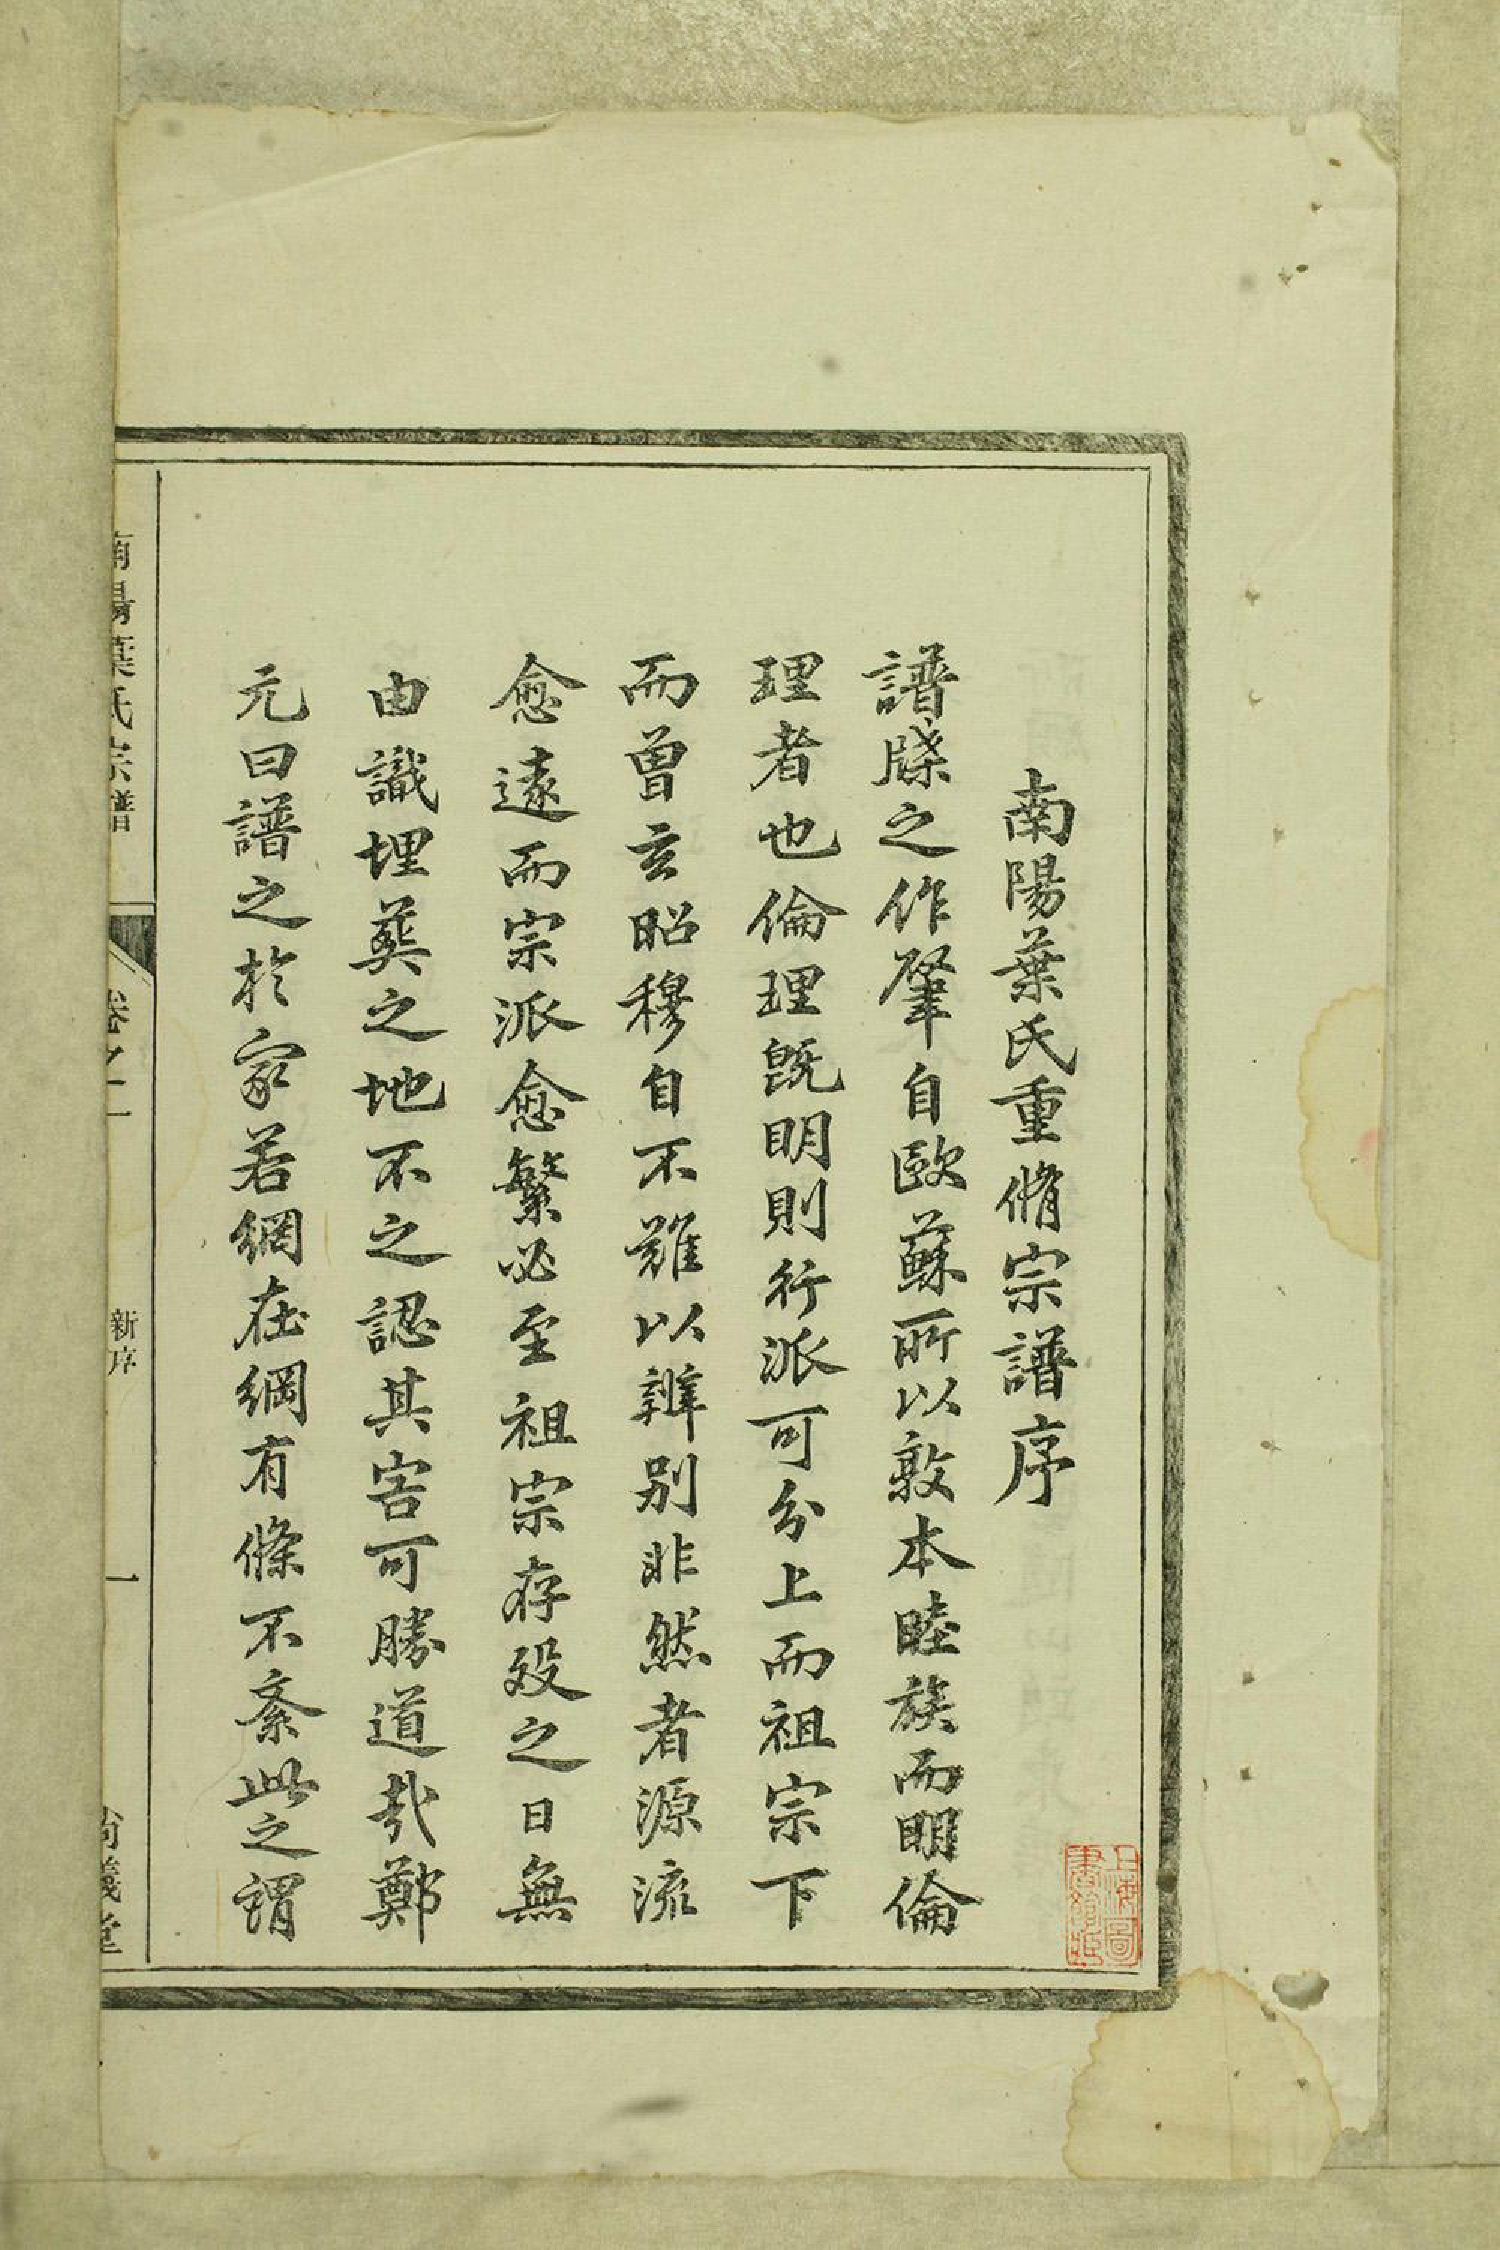 南陽葉氏重脩宗譜序
譜牒之作肇自歐蘇所以敦本睦族而明倫
理者也倫理旣明則行派可分上而祖宗下
而曾玄昭穆自不難以辨别非然者源流
愈遠而宗派愈繁必至祖宗存歿之日無
由識埋葬之地不之認其害可勝道哉鄭
元曰譜之於家若網在綱有條不紊此之謂
南陽葉氏宗譜
卷之一
新序
一
尚義堂
上海圖
書館藏